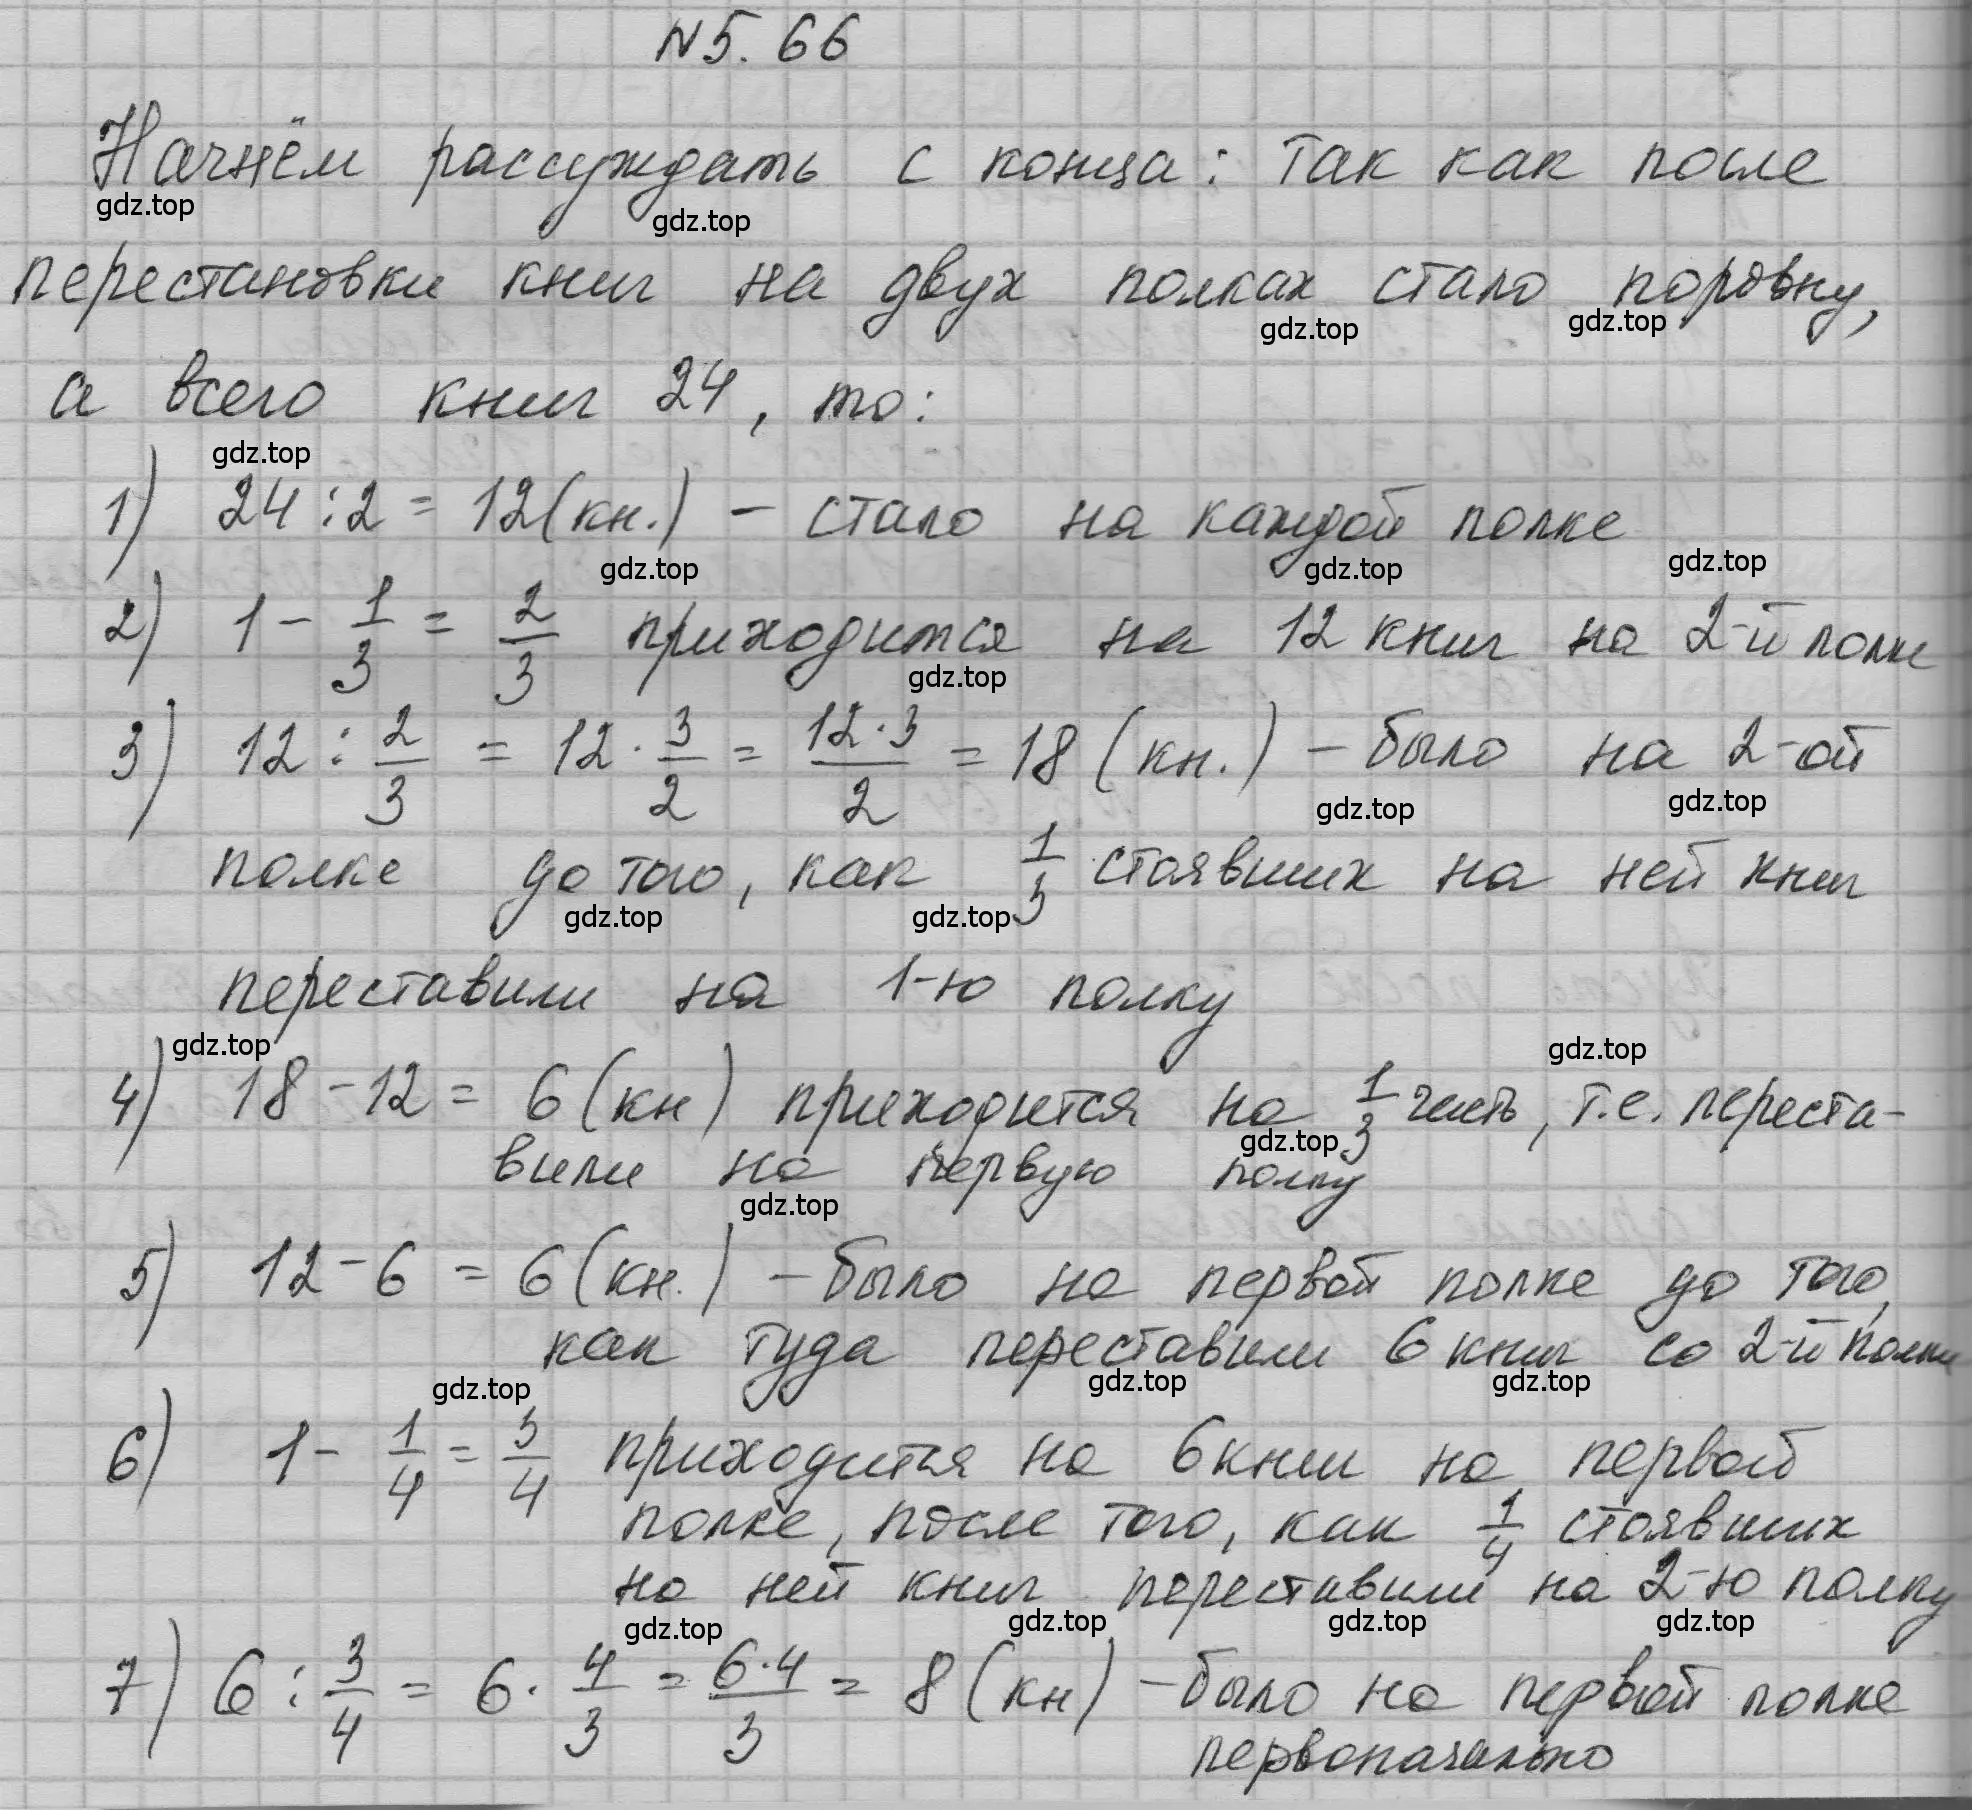 №5.66
Начнём рассуждать с конца: так как после
gdz.top gdz.top
перестановки книг на двух полках стало поровну,
gdz.top gdz.top
а всего книг 24, то:
gdz.top
1) 24 : 2 = 12 (кн.) – стало на каждой полке
gdz.top gdz.top gdz.top
2) 1 - 1/3 = 2/3 приходится на 12 книг на 2-й полке
gdz.top
3) 12 : 2/3 = 12 · 3/2 = (12 · 3)/2 = 18 (кн.) – было на 2-ой
gdz.top gdz.top
полке до того, как 1/3 стоявших на ней книг
gdz.top gdz.top
переставили на 1-ю полку
gdz.top gdz.top
4) 18 - 12 = 6 (кн) приходится на 1/3 часть, т.е. переста-
gdz.top
вили на первую полку
gdz.top
5) 12 - 6 = 6 (кн.) – было на первой полке до того,
как туда переставили 6 книг со 2-й полки
gdz.top gdz.top gdz.top
6) 1 - 1/4 = 3/4 приходится на 6 книг на первой
полке, после того, как 1/4 стоявших
на ней книг переставили на 2-ю полку
gdz.top gdz.top gdz.top gdz.top
7) 6 : 3/4 = 6 · 4/3 = (6 · 4)/3 = 8 (кн) – было на первой полке
первоначально